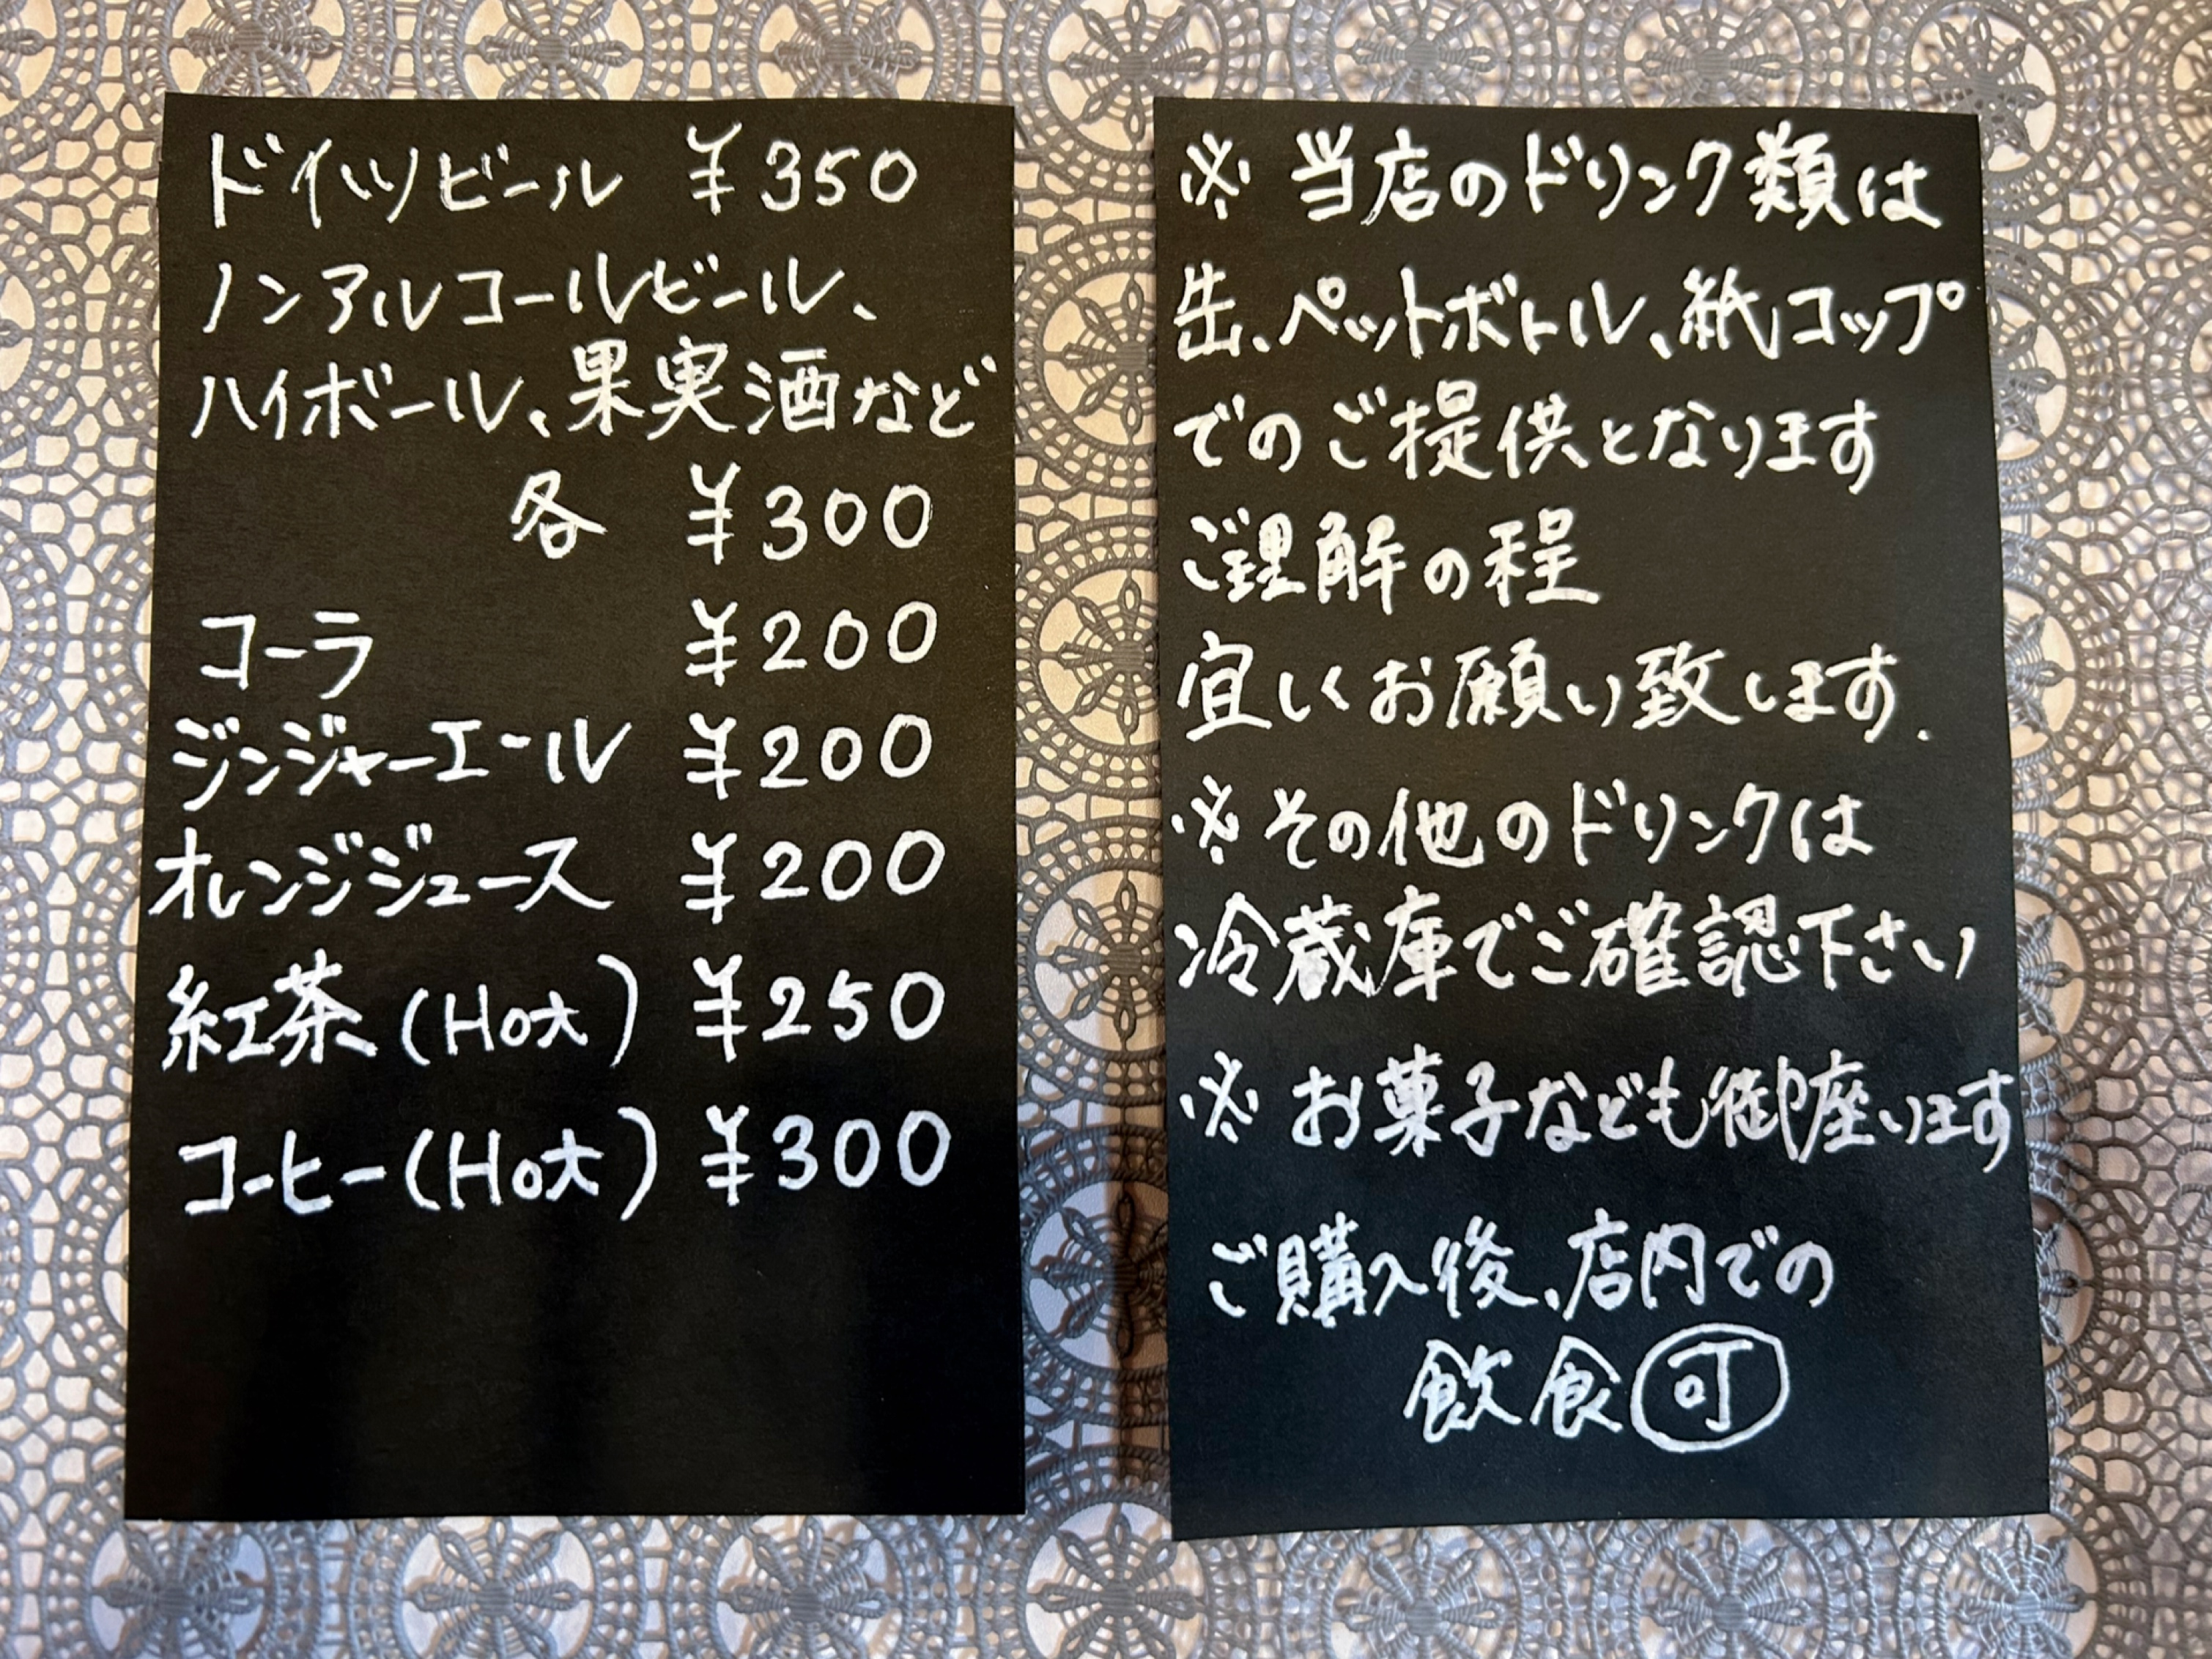 ドイツビール ¥350
ノンアルコールビール、
ハイボール、果実酒など
各 ¥300
コーラ ¥200
ジンジャーエール ¥200
オレンジジュース ¥200
紅茶(Hot) ¥250
コーヒー(Hot) ¥300
※ 当店のドリンク類は
缶、ペットボトル、紙コップ
でのご提供となります
ご理解の程
宜しくお願い致します.
※その他のドリンクは
冷蔵庫でご確認下さい
※ お菓子なども御座います
ご購入後、店内での
飲食可